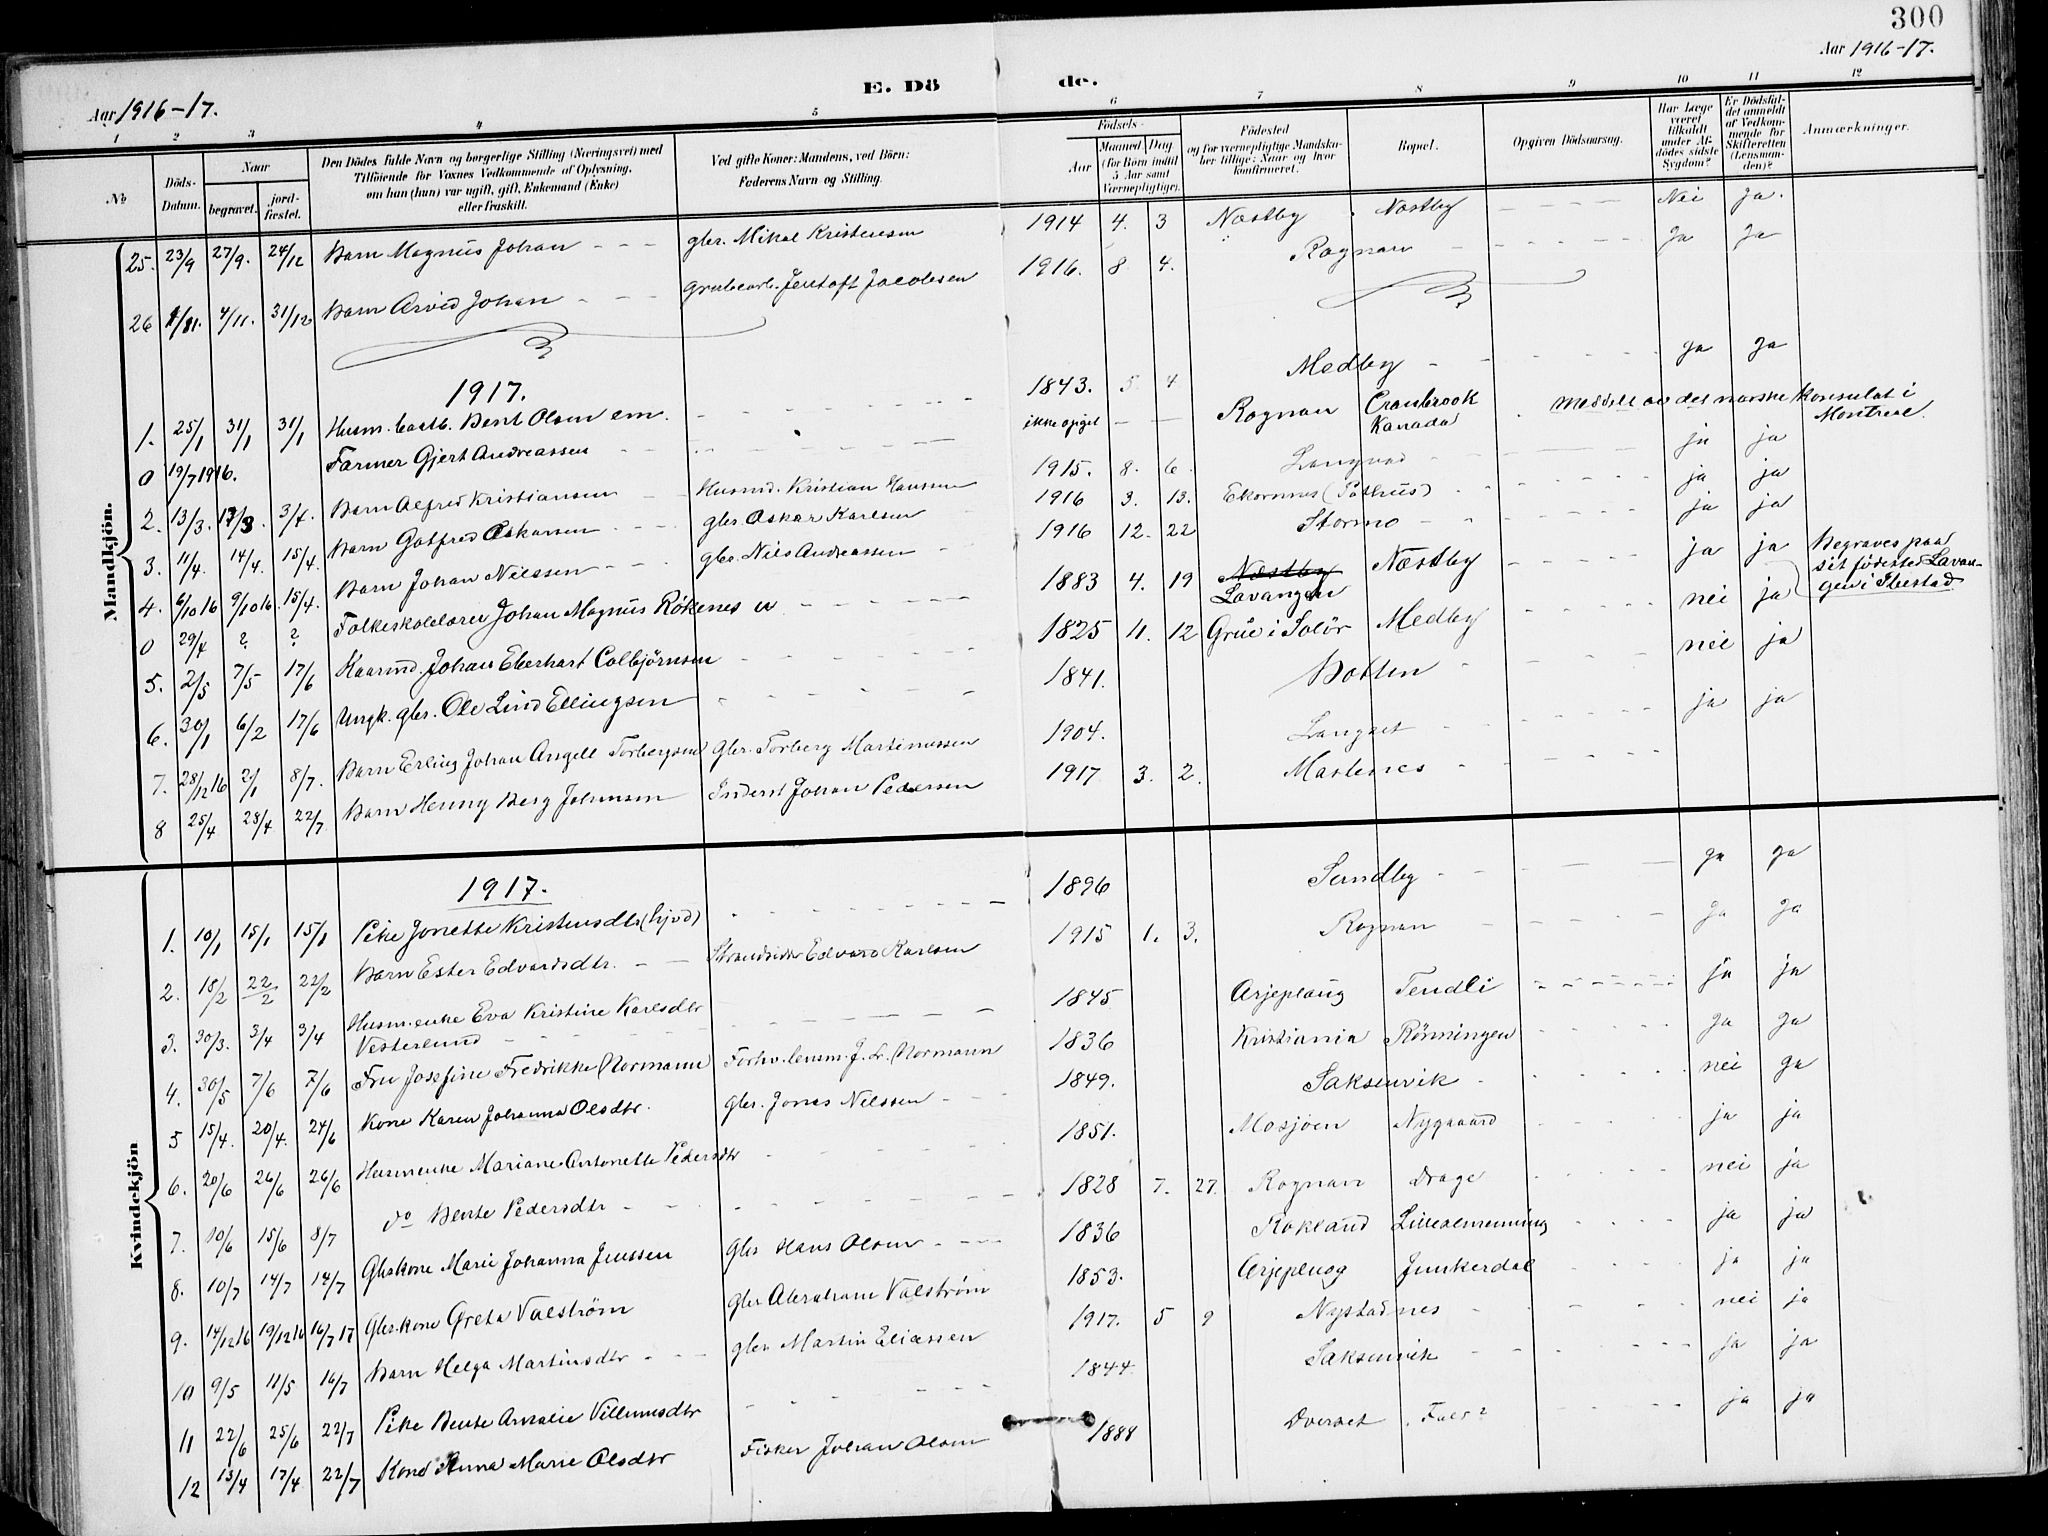 300
Aar 1916-17.
E. Dö de.
Aar 1916-17.
1 2 3 4 5 6 7 8 9 10 11 12
No
Döds-Datum.
Naar
begravet.
jord-fæstet.
Den Dödes fulde Navn og borgerlige Stilling (Næringsvei) med
Tilföiende for Voxnes Vedkommende af Oplysning,
om han (hun) var ugift, gift, Enkemand (Enke)
eller fraskilt.
Ved gifte Koner: Mandens, ved Börn:
Faderens Navn og Stilling.
Födsels-
Aar
Maaned Dag
(for Börn indtil
5 Aar samt
Værnepligtige).
Födested
og for værnepligtige Mandska-
ber tillige: Naar og hvor
konfirmeret.
Bopæl.
Opgiven Dödsaarsag.
Har Læge
været
tilkaldt
under Af-
dödes sidste
Sygdom?
Er Dödsfal-
det anmeldt
af Vedkom-
mende for
Skifteretten
(Lensman-
den)?
Anmærkninger.
Mandkjön.
25. 23/9 27/9. 24/12 Barn Magnus Johan - - - gbr. Mikal Kristensen 1914 4. 3 Næstby Næstby - - - - Nei ja.
26 1/11. 4/11. 31/12 Barn Arvid Johan - - - Grubearb. Jentoft Jacobsen 1916. 8 4. Rognan - - - - ja ja
1917.
1. 25/1 31/1 31/1 Husm. Bent Olsen em. - - - 1843. 5 4 Medby - - - - ja ja
0 19/7 1916. Farmer Gjert Andreassen - - - ikke opgit - - Rognan Cranbrook Kanada Meddelt av det norske Konsulat i Montreal.
2. 13/3. 17/3. 3/4. Barn Alfred Kristiansen - Husmd. Kristian Hansen 1915. 8. 6. - - - ja ja
3. 11/4. 14/4. 15/4. Barn Gotfred Oskarsen - - - gbr. Oskar Karlsen 1916 3. 13. Ekornnes - - - ja ja
4. 6/10 16 9/10 16. 15/4. Barn Johan Nilssen - - - gbr. Nils Andreassen 1916 12. 22 Stormo - - - ja ja
0 29/4 ? ? Folkeskolelærer Johan Magnus Rökenes u - - - 1883 4. 19 Næstby Lavangen Næstby - - - ja ja Begraves paa sit födested Lavangen i Ibestad
5. 2/5 7/5 17/6 Kaarmd. Johan Eberhart Colbjörnsen - - - 1825 11. 12 Grue i Solör Medby - - - nei ja
6. 30/1 6/2 17/6 Ungk. gbr. Ole Lind Ellingsen - - - 1841. Botten - - - nei ja
7. 28/12 16 2/1 8/7. Barn Erling Johan Angell Torbergsen Gbr. Torberg Martinussen 1904. Langset - - - ja ja
8 25/4 28/4 22/7 Barn Henny Berg Johansen Inderst Johan Pedersen 1917 3. 2. - - -
Kvindekjön
1917.
1. 10/1 15/1 15/1 Pike Jonette Kristensdtr. - - - 1896 Sundby - - - ja ja
2. 18/2 22/2 22/2 Barn Ester Edvardsdtr. - - Strandsidder Edvard Karlsen 1915 1. 3. Rognan - - - ja ja
3. 30/3. 3/4 3/4 Husm. enke Eva Kristine Karlsdtr Vesterlund - - - 1845 Arjeplaug Tendli - - - ja ja
4. 30/5 7/6 7/6 Fru Josefine Fredrikke Normann Forhv. lensm. J. L. Normann 1836 Kristiania Rönningen - - - ja ja
5 15/4. 20/4. 24/6 Kone Karen Johanna Olsdtr. Gbr. Jonas Nilssen - - 1849. Saksenvik - - - nei ja
6. 20/6 26/6 26/6 Husm enke Mariane Antonette Pedersdtr - - - 1851. Mosjoen Nygaard - - - ja ja
7. 10/6 15/6 8/7 do Bente Pedersdtr - - - 1828 7. 27. Rognan Drage - - - nei ja
8. 10/7 14/7 14/7 Gbskone Marie Johanna Jenssen Gbr Hans Olsen - - - 1836 Rokland Lillealmenning - - - ja ja
9. 14/12 16 19/12 16 16/7 17 Gbr. kone Greta Valström gbr Abraham Valström 1853. Arjepluog Junkerdal - - - ja ja
10 9/5 11/5 16/7 Barn Helga Martinsdtr - - gbr Martin Eliassen 1917. 5 9 Nystadnes - - - nei ja
11 22/6 25/6 22/7 Pike Bente Amalie Villumsdtr - - - 1844 Saksenvik - - - ja ja
12 13/4 17/4 22/7 Kone Anna Marie Olsdtr Fisker Johan Olsen 1888 Dverset - - - ja ja